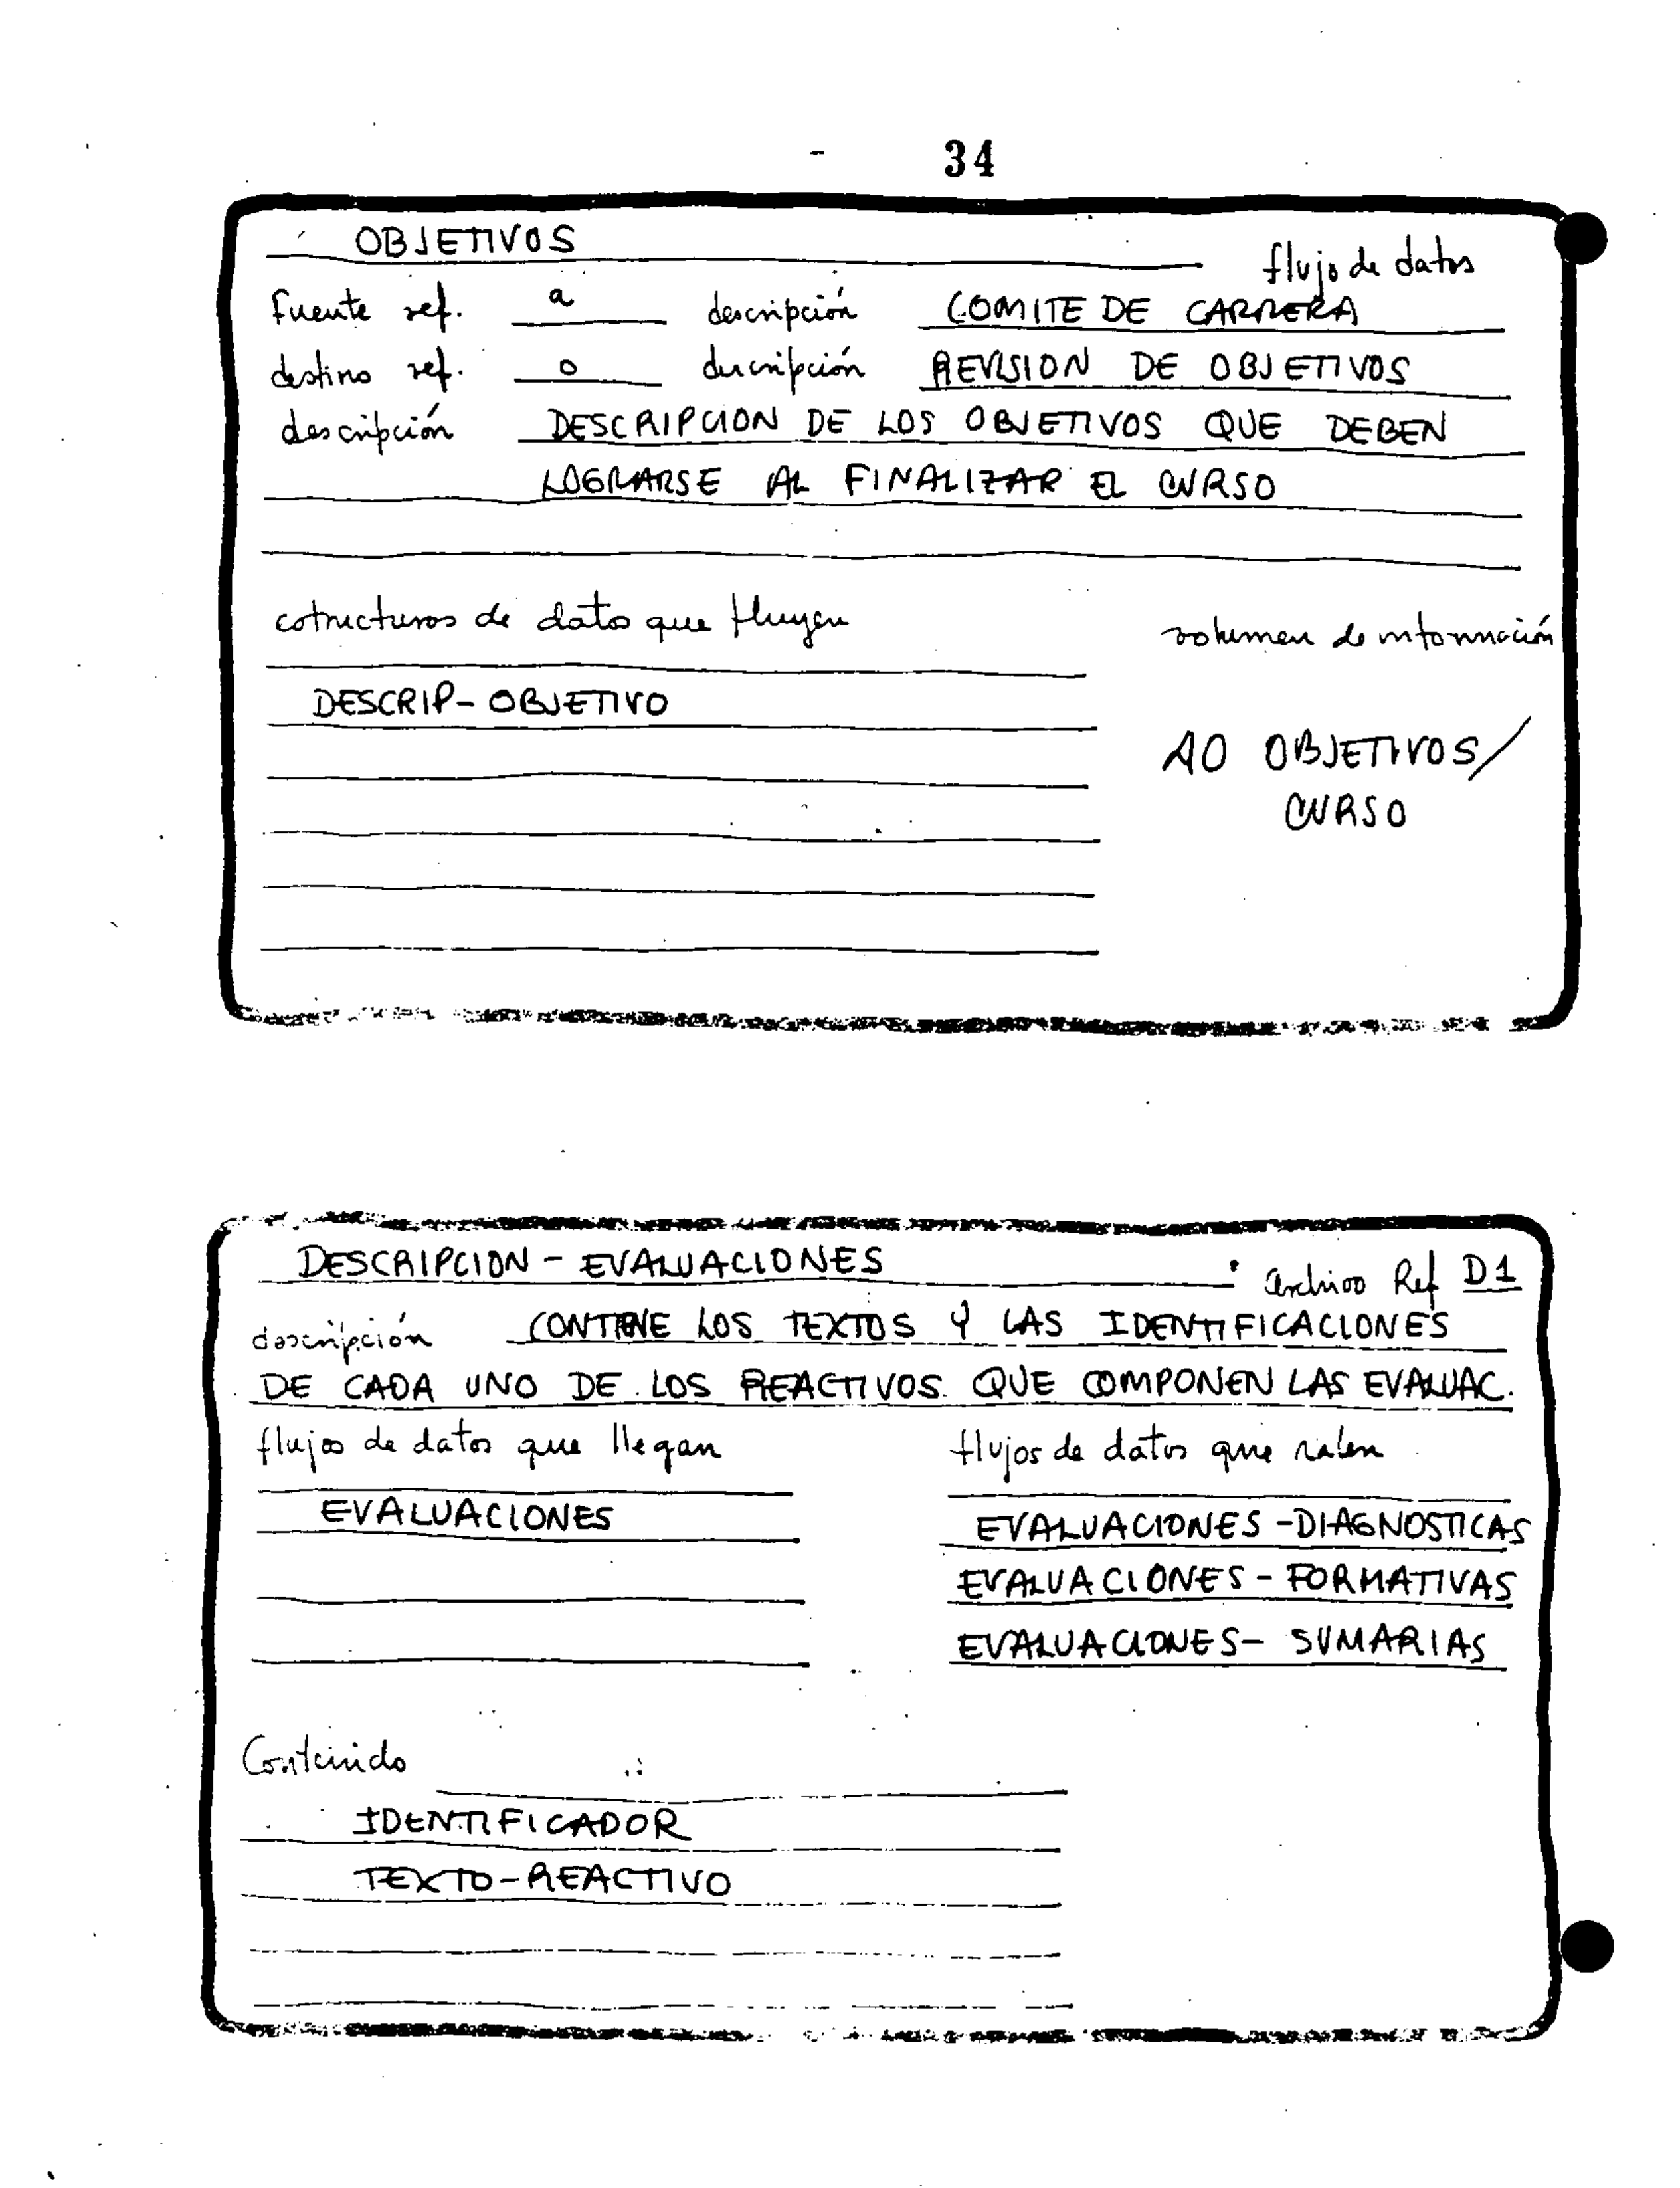 34
OBJETIVOS flujo de datos
fuente ref. a descripción COMITE DE CARRERA
destino ref. o descripción REVISION DE OBJETIVOS
descripción DESCRIPCION DE LOS OBJETIVOS QUE DEBEN
LOGRARSE AL FINALIZAR EL CURSO
estructuras de datos que fluyen volumen de información
DESCRIP-OBJETIVO
10 OBJETIVOS/
CURSO
DESCRIPCION - EVALUACIONES archivo Ref D1
descripción CONTIENE LOS TEXTOS Y LAS IDENTIFICACIONES
DE CADA UNO DE LOS REACTIVOS QUE COMPONEN LAS EVALUAC.
flujos de datos que llegan flujos de datos que salen
EVALUACIONES EVALUACIONES-DIAGNOSTICAS
EVALUACIONES-FORMATIVAS
EVALUACIONES-SUMARIAS
Contenido
IDENTIFICADOR
TEXTO-REACTIVO